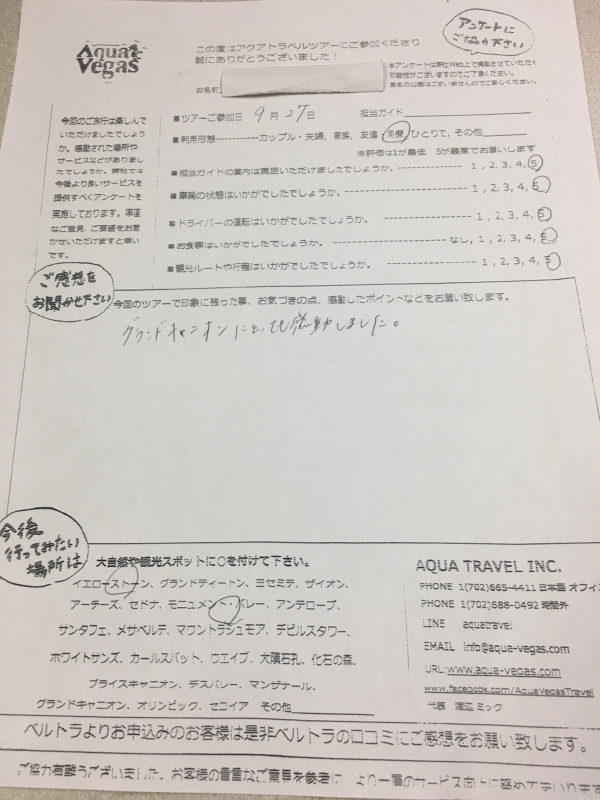 Aqua Vegas
この度はアクアトラベルツアーにご参加くださり
誠にありがとうございました！
アンケートに
ご協力下さい
本アンケートは弊社Web上で掲載させていただく
可能性がございますのでご了承ください。
実名の公表はございませんのでご安心ください。
お名前
今回のご旅行は楽しんで
いただけましたでしょう
か。感動された場所や
サービスなどがありまし
たでしょうか。弊社では
今後より良いサービスを
提供すべくアンケートを
実施しております。率直
なご意見、ご要望をお聞
かせいただけますと幸い
です。
■ツアーご参加日 9月27日 担当ガイド
■利用形態-----------カップル・夫婦, 家族, 友達, 同僚, ひとりで, その他
※評価は1が最低 5が最高でお願いします
■担当ガイドの案内は満足いただけましたでしょうか。------------------ 1, 2, 3, 4, 5
■車輌の状態はいかがでしたでしょうか。------------------ 1, 2, 3, 4, 5
■ドライバーの運転はいかがでしたでしょうか。------------------ 1, 2, 3, 4, 5
■お食事はいかがでしたでしょうか。------------------ なし, 1, 2, 3, 4, 5
■観光ルートや行程はいかがでしたでしょうか。------------------ 1, 2, 3, 4, 5
ご感想を
お聞かせ下さい
今回のツアーで印象に残った事、お気づきの点、感動したポイントなどをお願い致します。
グランドキャニオンにとても感動しました。
今後
行ってみたい
場所は
大自然や観光スポットに〇を付けて下さい。
イエローストーン、グランドティートン、ヨセミテ、ザイオン、
アーチーズ、セドナ、モニュメント・バレー、アンテロープ、
サンタフェ、メサベルデ、マウントラシュモア、デビルスタワー、
ホワイトサンズ、カールスバット、ウエイブ、大隕石孔、化石の森、
ブライスキャニオン、デスバレー、マンザナール、
グランドキャニオン、オリンピック、セコイア その他
AQUA TRAVEL INC.
PHONE 1(702)665-4411 日本語 オフィ
PHONE 1(702)588-0492 時間外
LINE aquatravel
EMAIL info@aqua-vegas.com
URL:www.aqua-vegas.com
www.facebook.com/AquaVegasTravel
代表 渡辺 ミック
ベルトラよりお申込みのお客様は是非ベルトラの口コミにご感想をお願い致します。
ご協力有難うございました。お客様の貴重なご意見を参考に、より一層のサービス向上に努めてまいります